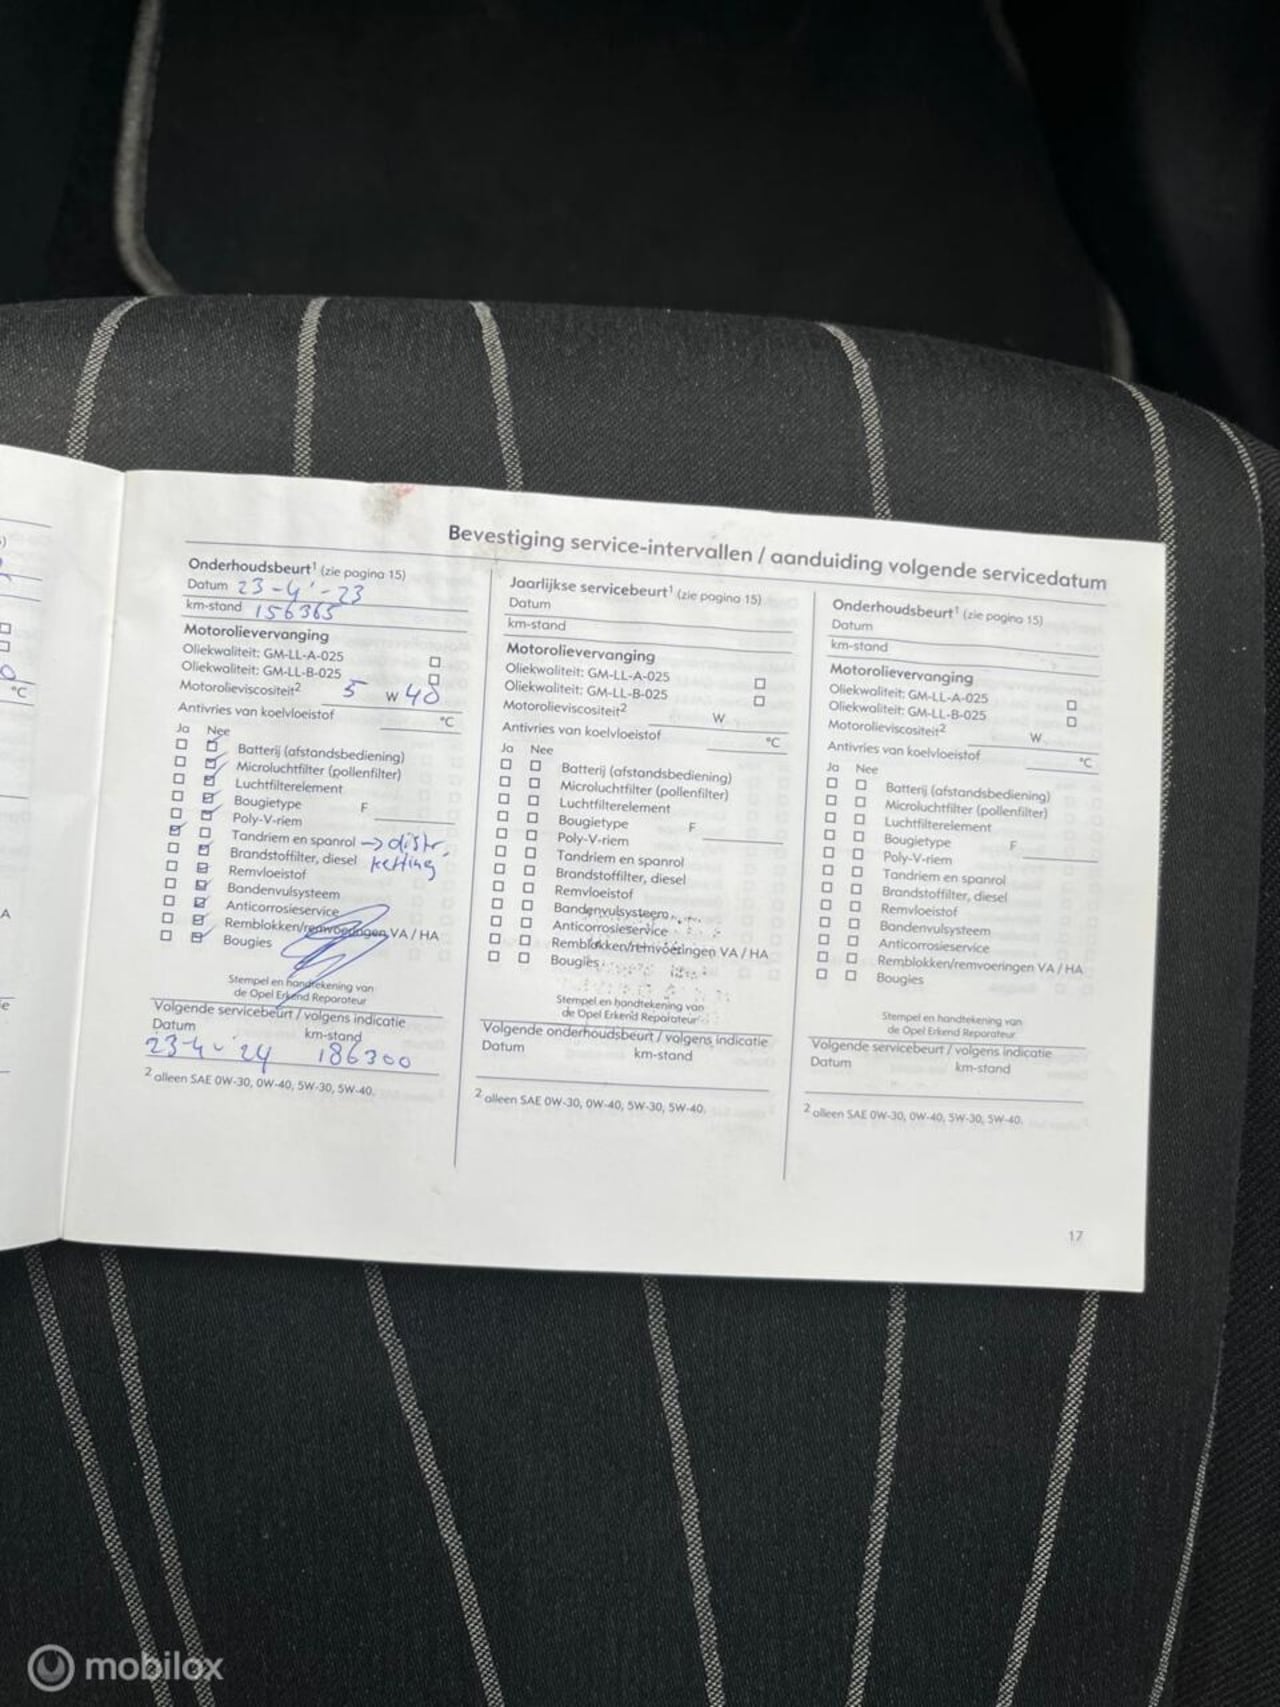 Bevestiging service-intervallen / aanduiding volgende servicedatum
Onderhoudsbeurt¹ (zie pagina 15)
Datum 23-4'-23
km-stand 156365
Motorolievervanging
Oliekwaliteit: GM-LL-A-025
Oliekwaliteit: GM-LL-B-025
Motorolieviscositeit² 5 W 40
Antivries van koelvloeistof °C
Ja Nee
Batterij (afstandsbediening)
Microluchtfilter (pollenfilter)
Luchtfilterelement
Bougietype F
Poly-V-riem
Tandriem en spanrol → distr.
Brandstoffilter, diesel ketting
Remvloeistof
Bandenvulsysteem
Anticorrosieservice
Remblokken/remvoeringen VA / HA
Bougies
Stempel en handtekening van
de Opel Erkend Reparateur
Volgende servicebeurt / volgens indicatie
Datum km-stand
23-4-'24 186300
² alleen SAE 0W-30, 0W-40, 5W-30, 5W-40.
Jaarlijkse servicebeurt¹ (zie pagina 15)
Datum
km-stand
Motorolievervanging
Oliekwaliteit: GM-LL-A-025
Oliekwaliteit: GM-LL-B-025
Motorolieviscositeit² W
Antivries van koelvloeistof °C
Ja Nee
Batterij (afstandsbediening)
Microluchtfilter (pollenfilter)
Luchtfilterelement
Bougietype F
Poly-V-riem
Tandriem en spanrol
Brandstoffilter, diesel
Remvloeistof
Bandenvulsysteem
Anticorrosieservice
Remblokken/remvoeringen VA / HA
Bougies
Stempel en handtekening van
de Opel Erkend Reparateur
Volgende onderhoudsbeurt / volgens indicatie
Datum km-stand
² alleen SAE 0W-30, 0W-40, 5W-30, 5W-40.
Onderhoudsbeurt¹ (zie pagina 15)
Datum
km-stand
Motorolievervanging
Oliekwaliteit: GM-LL-A-025
Oliekwaliteit: GM-LL-B-025
Motorolieviscositeit² W
Antivries van koelvloeistof °C
Ja Nee
Batterij (afstandsbediening)
Microluchtfilter (pollenfilter)
Luchtfilterelement
Bougietype F
Poly-V-riem
Tandriem en spanrol
Brandstoffilter, diesel
Remvloeistof
Bandenvulsysteem
Anticorrosieservice
Remblokken/remvoeringen VA / HA
Bougies
Stempel en handtekening van
de Opel Erkend Reparateur
Volgende servicebeurt / volgens indicatie
Datum km-stand
² alleen SAE 0W-30, 0W-40, 5W-30, 5W-40.
17
mobilox